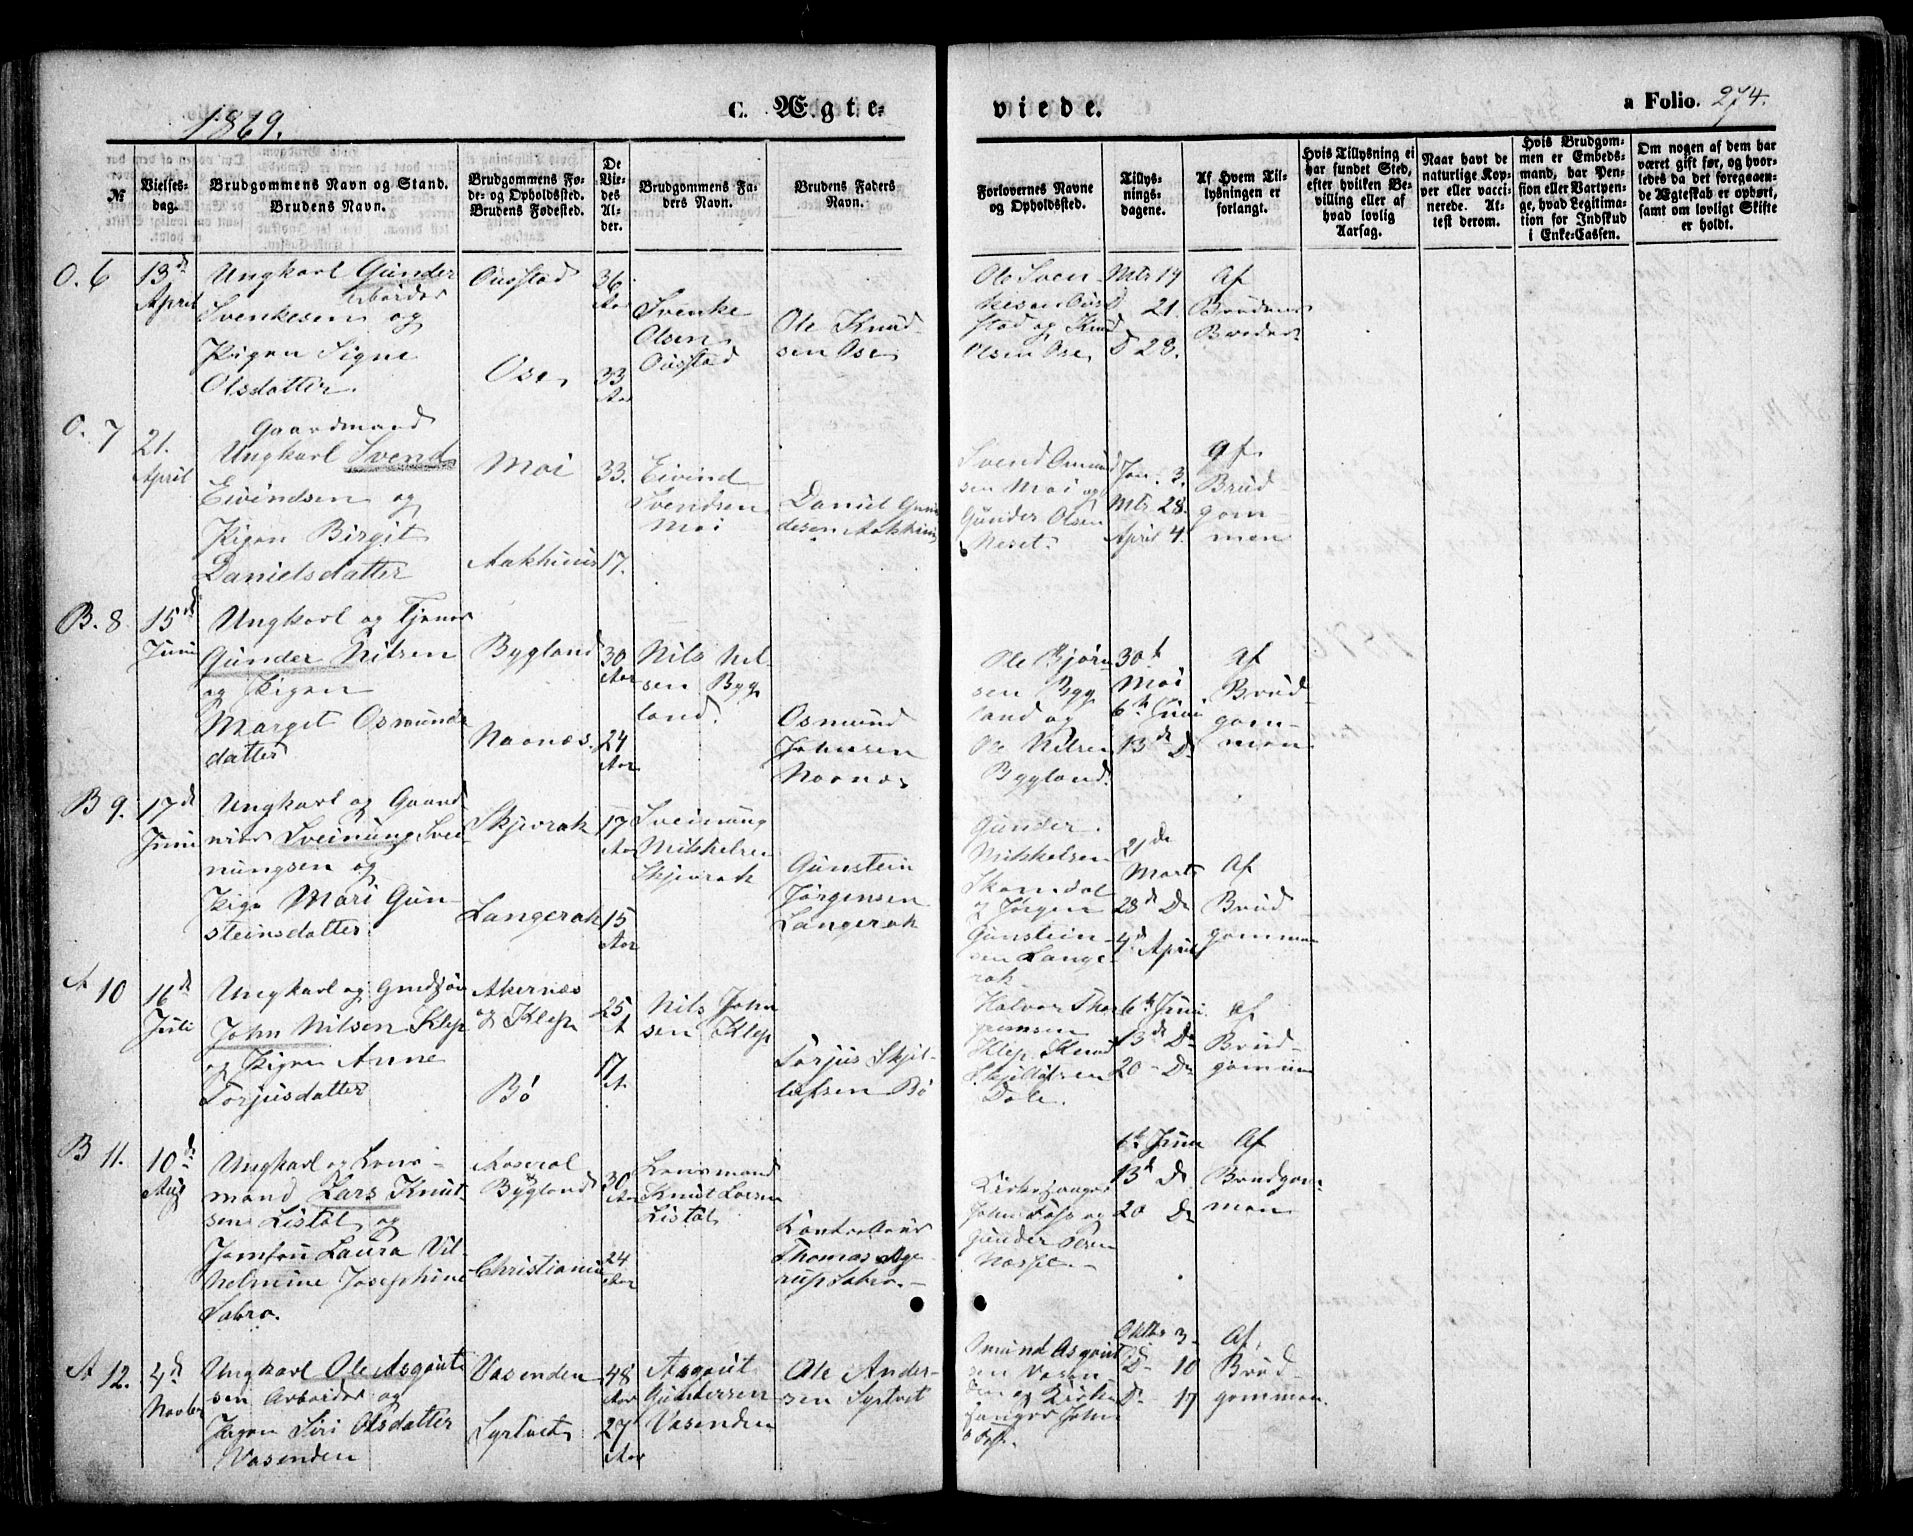 1869.
C. Ægte-
viede.
a Folio. 274.
№
Vielses-
dag.
Brudgommens Navn og Stand.
Brudens Navn.
Brudgommens Fø-
de- og Opholdssted.
Brudens Fødested.
De
Vie-
des
Al-
der.
Brudgommens Fa-
ders Navn.
Brudens Faders
Navn.
Forlovernes Navne
og Opholdssted.
Tillys-
nings-
dagene.
Af Hvem Til-
lysningen er
forlangt.
Hvis Tillysning ei
har fundet Sted,
efter hvilken Be-
villing eller af
hvad lovlig
Aarsag.
Naar havt de
naturlige Kop-
per eller vacci-
nerede. At-
test derom.
Hvis Brudgom-
men er Embeds-
mand, har Pen-
sion eller Vartpen-
ge, hvad Legitima-
tion for Indskud
i Enke-Cassen.
Om nogen af dem har
været gift før, og hvor-
ledes da det foregaaen-
de Ægteskab er ophørt,
samt om lovligt Skifte
er holdt.
O. 6
13d
April
Ungkarl Gunder
Arbeider
Svenkesen og
Pigen Signe
Olsdatter.
Ousstad
Ose
36
Aar
33
Aar
Svenke
Olsen
Ousstad
Ole Knud-
sen Ose
Ole Sven-
kesen Ous-
stad og Knud
Olsen Ose
Mts 14
D 21.
D 28.
Af
Brudens
Broder
O. 7
21.
April
Gaardmand
Ungkarl Svend
Eivindsen og
Pigen Birgit
Danielsdatter
Moi
Aakhuus
33.
17.
Eivind
Svendsen
Moi
Daniel Gun-
desen Aakhuus
Svend Omund-
sen Moi og
Gunder Olsen
Neset.
Jan. 3.
Mts 28.
April 4.
Af
Brud-
gom-
men
B. 8
15d
Juni
Ungkarl og Tjener
Gunder Nilsen
og Pigen
Margit Osmunds
datter
Bygland
Naanes.
30
Aar
24
Aar
Nils Nil-
sen Byg
land.
Osmund
Johnsen
Naanes
Ole Bjørn
sen Byg
land og
Ole Nilsen
Bygland.
30t
Mai
6t Juni
13de D
Af
Brud-
gom-
men
B 9.
17d
Juni
Ungkarl og Gaard
Sveinung Svei
nungsen og
Pige Mari Gun
steinsdatter
Skjevrak
Langerak
17
Aar
15
Aar
Sveinung
Mikkelsen
Skjevrak
Gunstein
Jørgensen
Langerak
Gunder
Mikkelsen
Skomdal
og Jørgen
Gunstein-
sen Lange-
rak.
21de
Marts
28d D
4d April
Af
Brud
gommen
A 10
16d
Juli
Ungkarl og
John Nilsen Klep
og Pigen Anne
Torjusdatter
Akernæs
og Klep
Bö
25
A
17
A.
Nils John
sen Klep
Torjus Skjel-
lufsen Bö
Halvor Thor
grimsen
Klep Knud
Dale.
6t Juni
13d D
20 - D
Af
Brud-
gommen
B 11.
10d
Aug
Ungkarl og Lens-
mand Lars Knut-
sen Listøl og
Jomfru Laura Vil-
helmine Josephine
Sabro.
Aaseral
Bygland
Christiania
30
Aar
24
Aar
Lensmand
Knut Larsen
Listøl
Thomas Age
rup Sabro.-
Kirkesanger
John Foss og
Gunder Olsen
Næsset.-
6t Juni
13d D
20 D
Af
Brudgom-
men
A 12.
4d
Novbr
Ungkarl Ole Asgouts
sen Arbeider og
Pigen Siri Olsdatter
Vasenden
Vasenden
Syrtveit
48
Aar
27
Aar
Asgout
Gundersen
Vasenden
Ole Ander-
sen Syrtveit
Omund Asgout
sen Vasen
den og Kirke
sanger John
Foss.
Oktbr 3-
D- 10
D- 17
Af
Brud-
gommen.